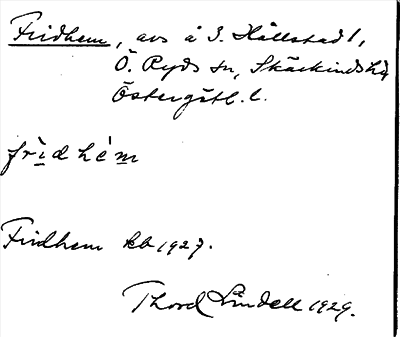 Fridhem, avs å S. Hållstad 1,
Ö. Ryds sn, Skärkinds hd
Östergötl. l.
frìdhém
Fridhem kb 1927.
Thord Lindell 1929.